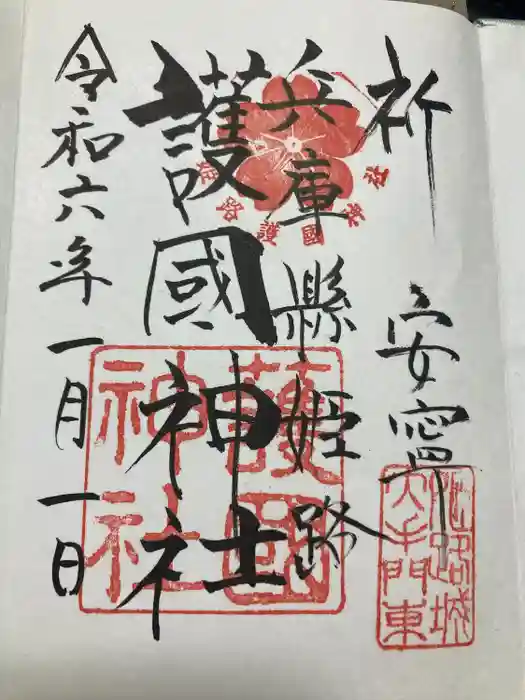 祈 安寧
兵庫縣姫路
護國神社
令和六年一月一日
護國神社
姫路城大手門東